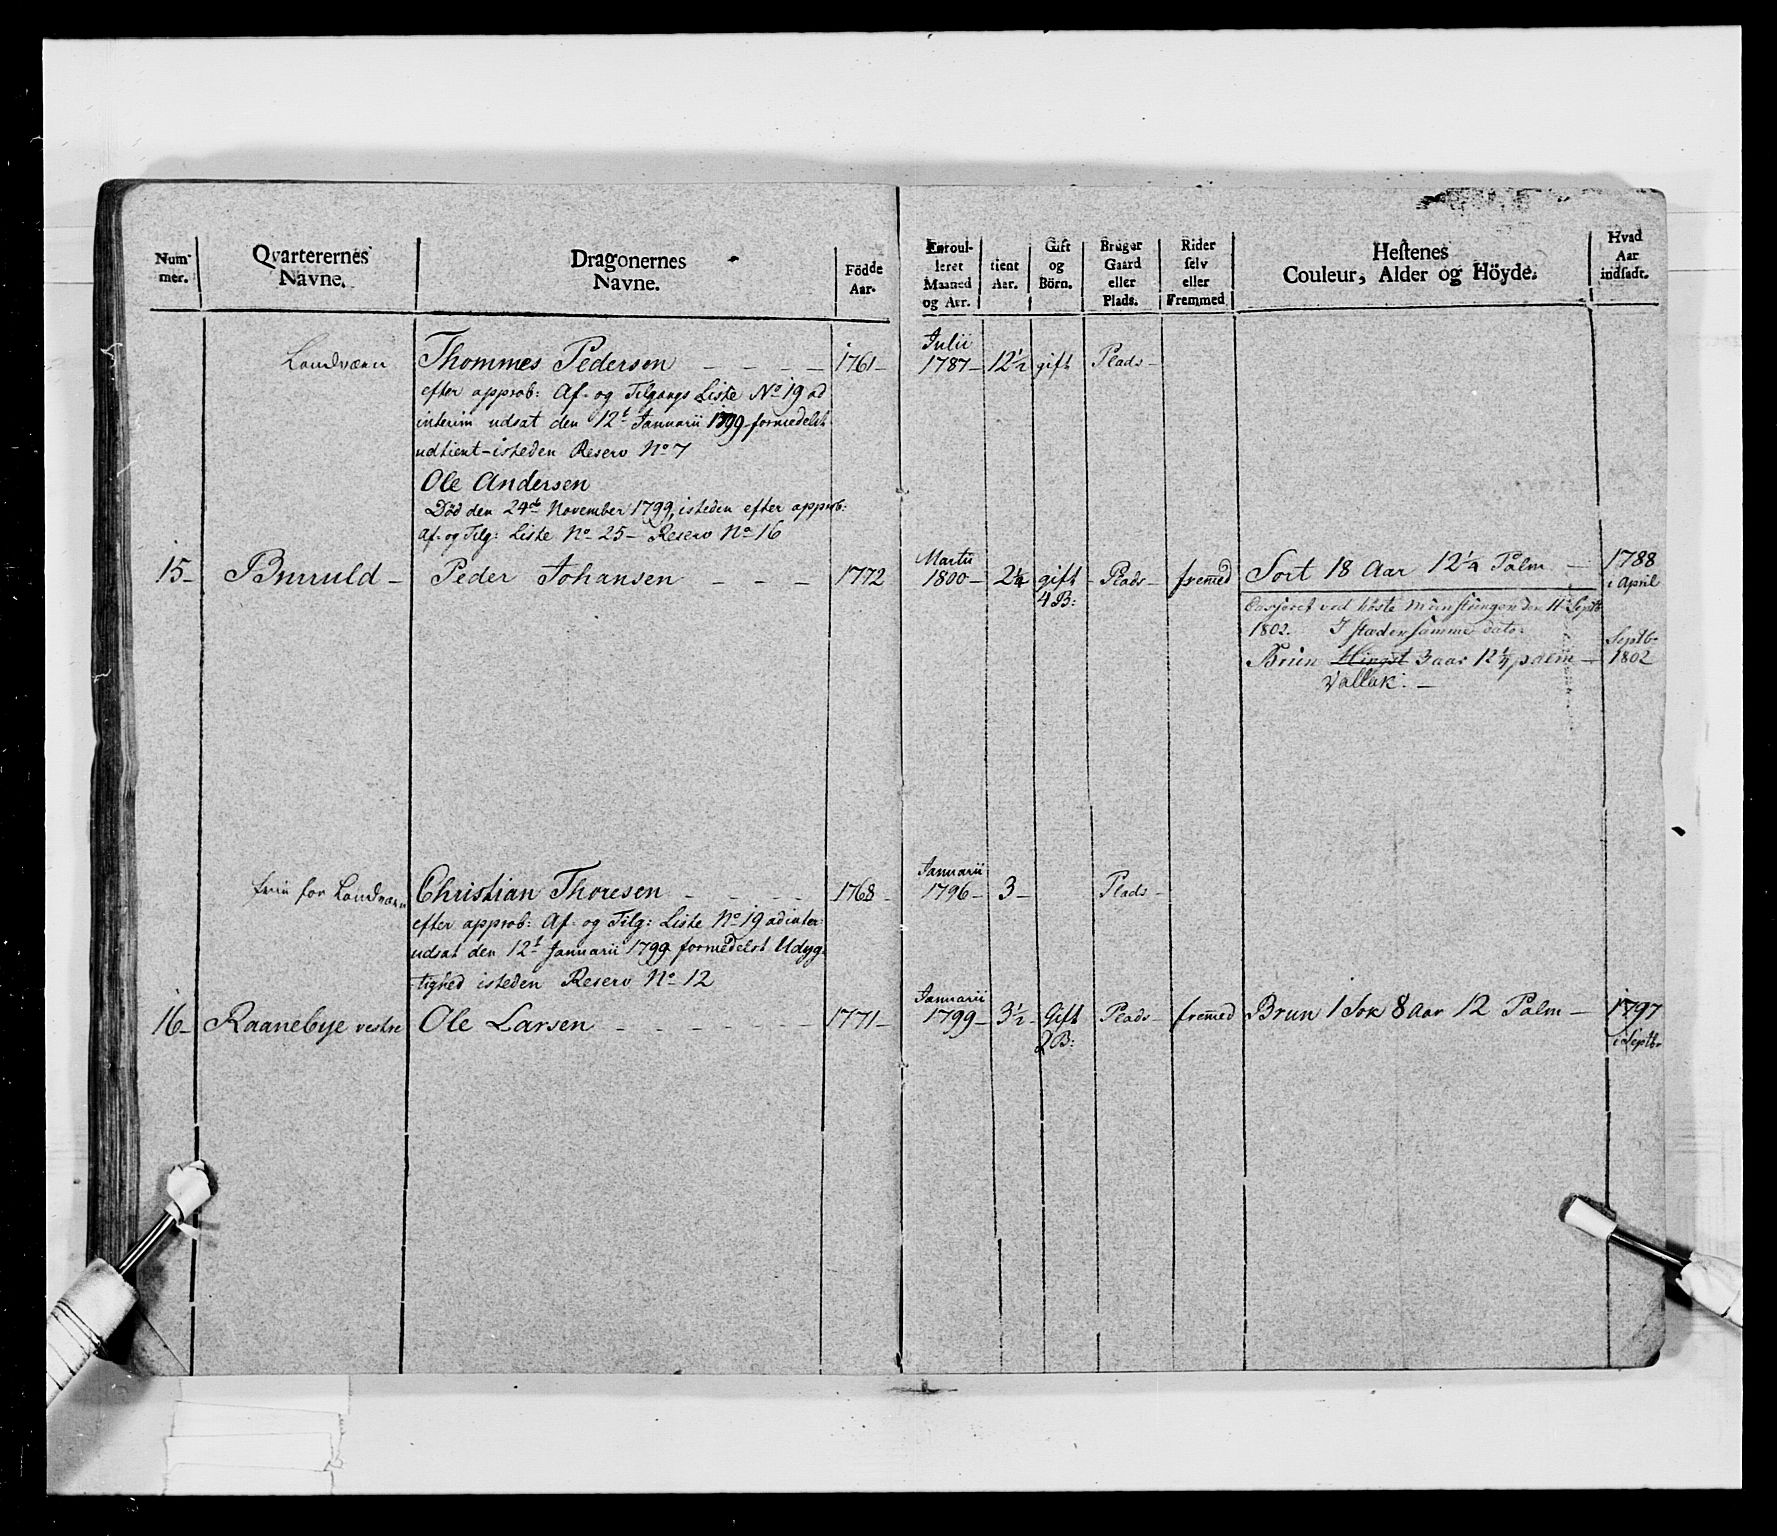 Num-
mer.
Qvarterernes
Navne.
Dragonernes
Navne.
Födde
Aar.
Enroul-
leret
Maaned
og Aar.
tient
Aar.
Gift
og
Börn.
Bruger
Gaard
eller
Plads.
Rider
selv
eller
Fremmed
Hestenes
Couleur, Alder og Höyde.
Hvad
Aar
indsadt.
Landværn Thommes Pedersen - - - - 1761- Julii 1787- 12½ gift Plads-
efter approb: Af- og Tilgangs Liste No 19 ad
interim udsat den 12t Januarii 1799 formedelst
udtient-isteden Reserv No 7
Ole Andersen
Död den 24de November 1799, isteden efter approb:
Af- og Tilg: Liste No 25- Reserv No 16
15- Peder Johansen - - - 1772 Martii 1800- 2¼ gift - Plads- fremed Sort 18 Aar 12¼ Palm - 1788
4 B: i April
ved höste Mönstringen den 11 Septb
1802. I stæden samme dato: Septb-
Brun Hingst 3 aar 12¼ palm - 1802
Vallak. -
for Landværn Christian Thoresen - - - - 1768- Januarii 1796- 3- Plads-
efter approb: Af- og Tilg: Liste No 19 ad inter:
udsat den 12t Januarii 1799 formedelst Udyg-
tighed isteden Reserv No 12
16- Raanebye vestre Ole Larsen - - - - - 1771- Januarii 1799- 3½- Gift Plads- fremed Brun 8 Aar 12 Palm - 1797
2 B: i Septb-